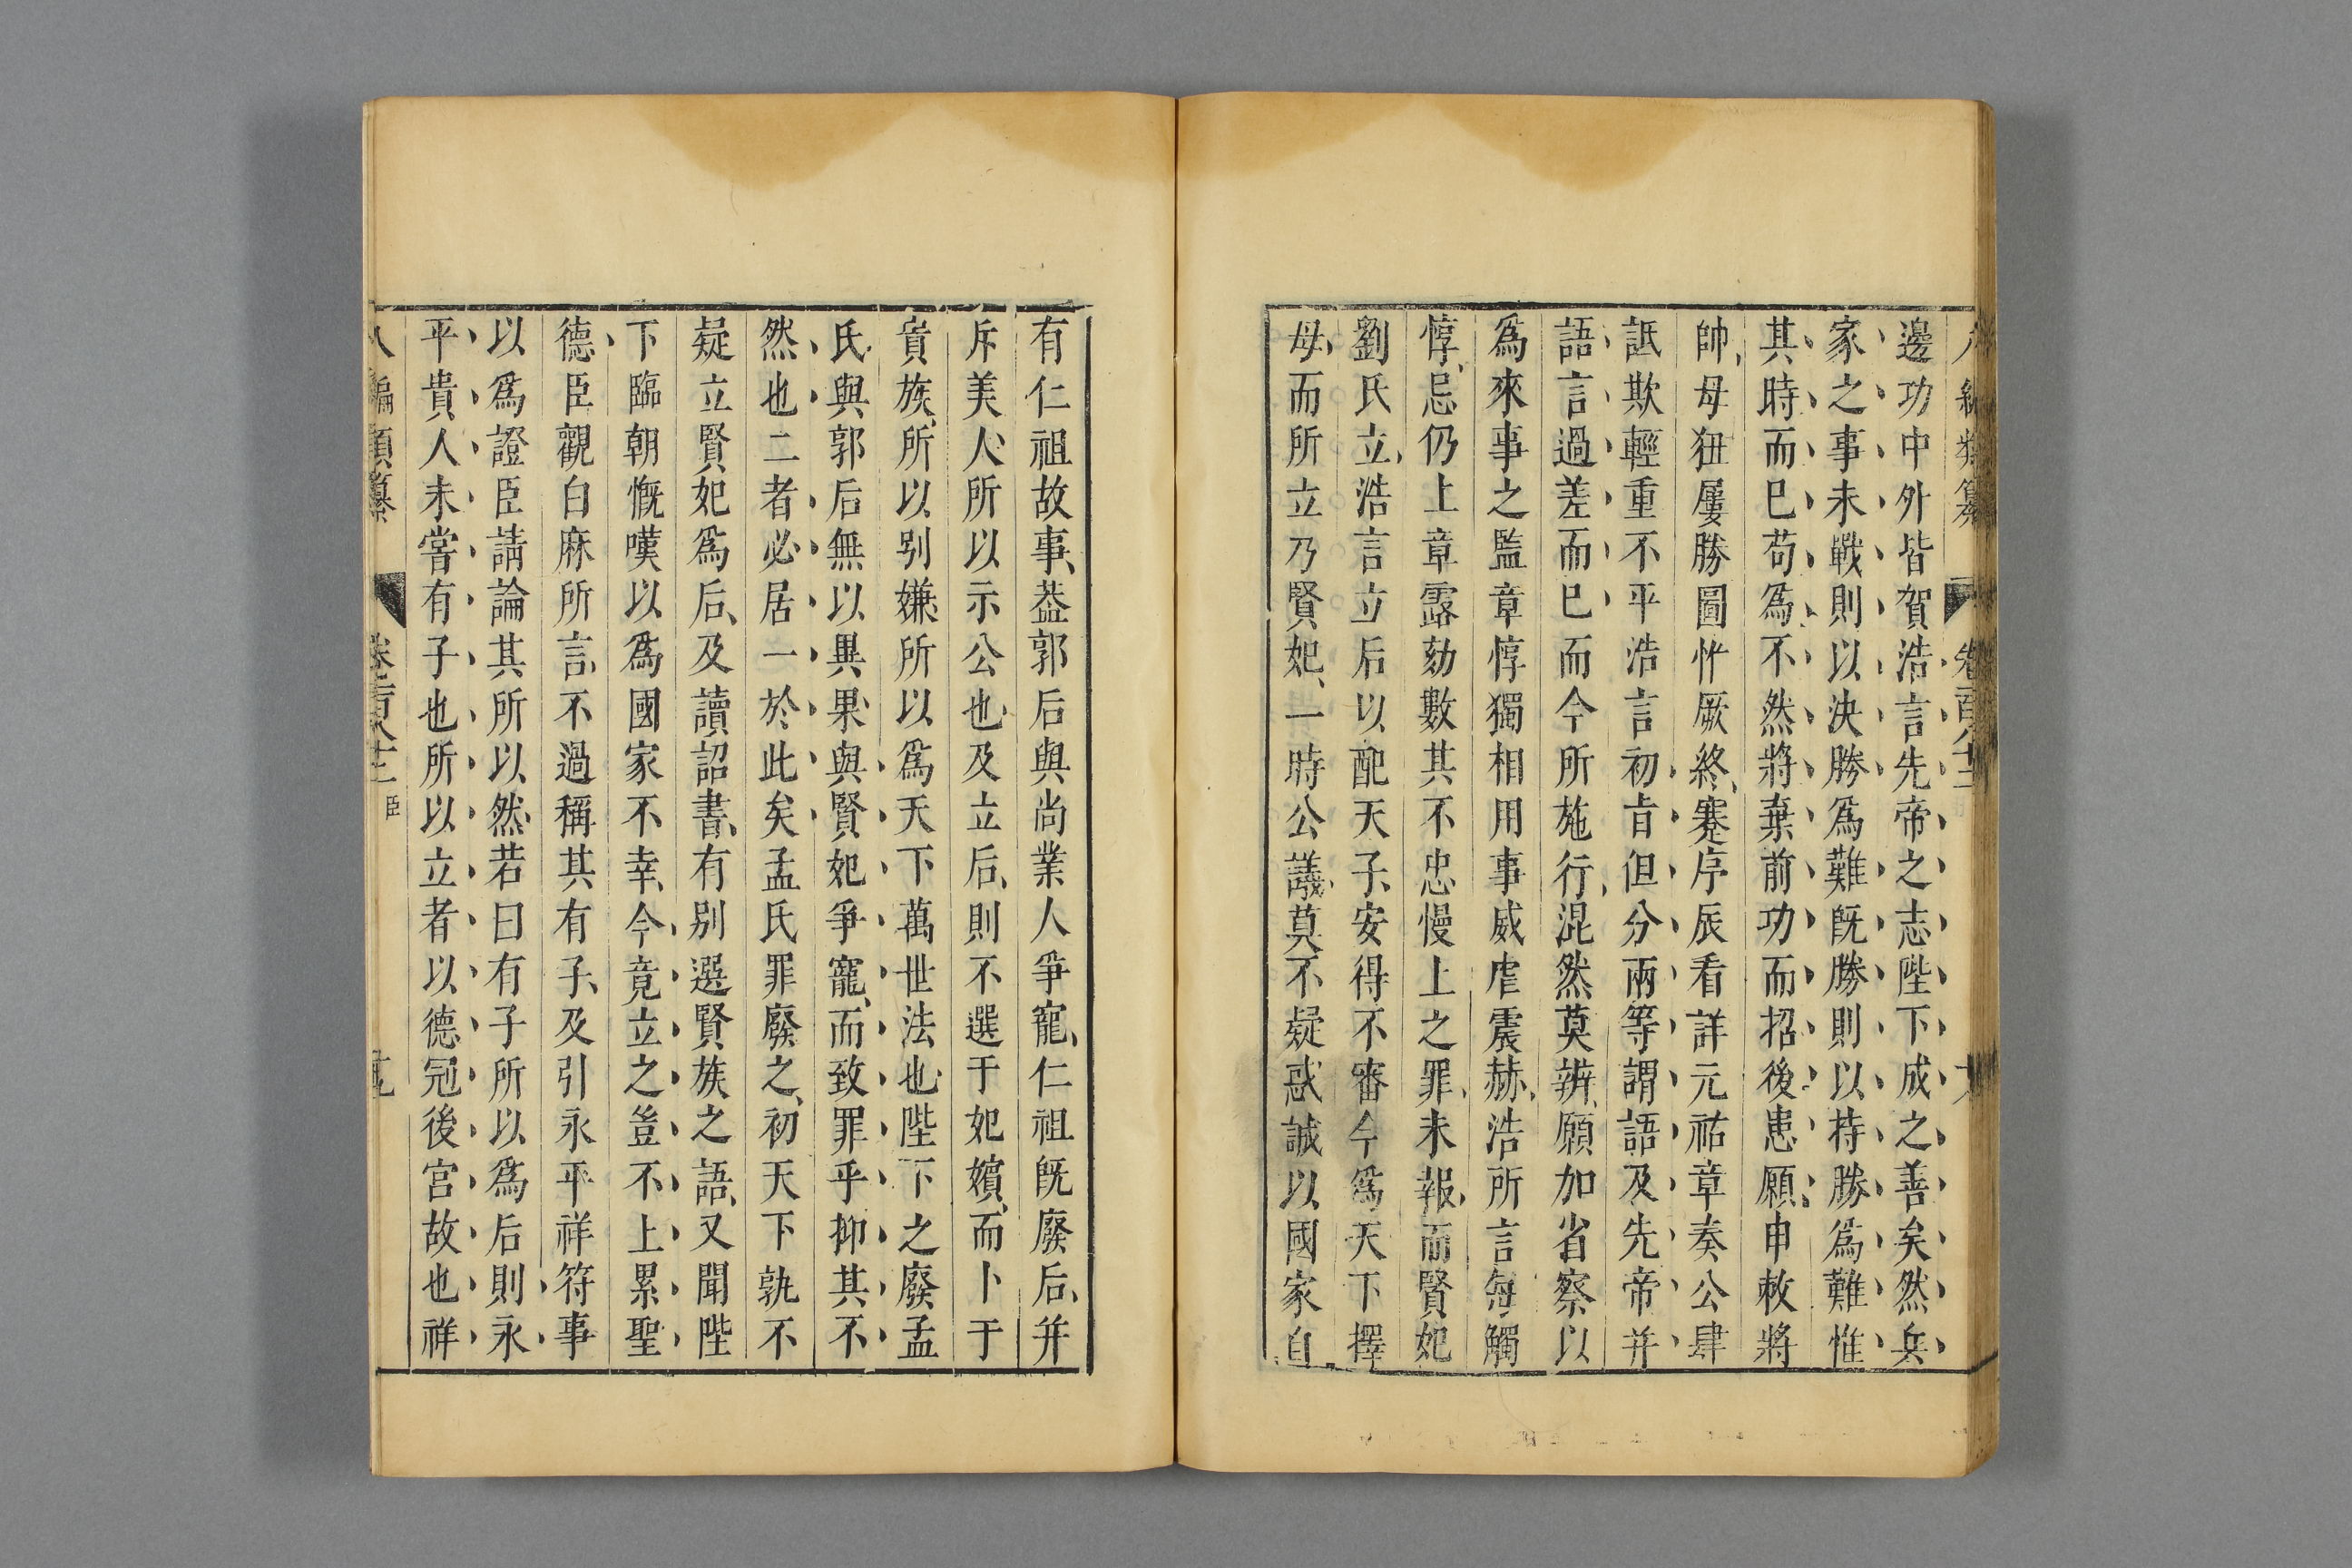 邊功中外皆賀浩言先帝之志陛下成之善矣然兵
家之事未戰則以決勝爲難旣勝則以持勝爲難惟
其時而已苟爲不然將棄前功而招後患願申敕將
帥母狃屢勝圖惟厥終蹇序辰看詳元祐章奏公肆
詆欺輕重不平浩言初旨但分兩等謂語及先帝并
語言過差而已而今所施行混然莫辨願加省察以
爲來事之監章惇獨相用事威虐震赫浩所言每觸
惇忌仍上章露劾數其不忠慢上之罪未報而賢妃
劉氏立浩言立后以配天子安得不審今爲天下擇
母而所立乃賢妃一時公議莫不疑惑誠以國家自
有仁祖故事葢郭后與尚業人爭寵仁祖旣廢后并
斥美人所以示公也及立后則不選于妃嬪而卜于
貴族所以别嫌所以爲天下萬世法也陛下之廢孟
氏與郭后無以異果與賢妃爭寵而致罪乎抑其不
然也二者必居一於此矣孟氏罪廢之初天下孰不
疑立賢妃爲后及讀詔書有别選賢族之語又聞陛
下臨朝慨嘆以爲國家不幸今竟立之豈不上累聖
德臣觀白麻所言不過稱其有子及引永平祥符事
以爲證臣請論其所以然若曰有子所以爲后則永
平貴人未嘗有子也所以立者以德冠後宮故也祥
八編類纂 卷一百八十二 臣